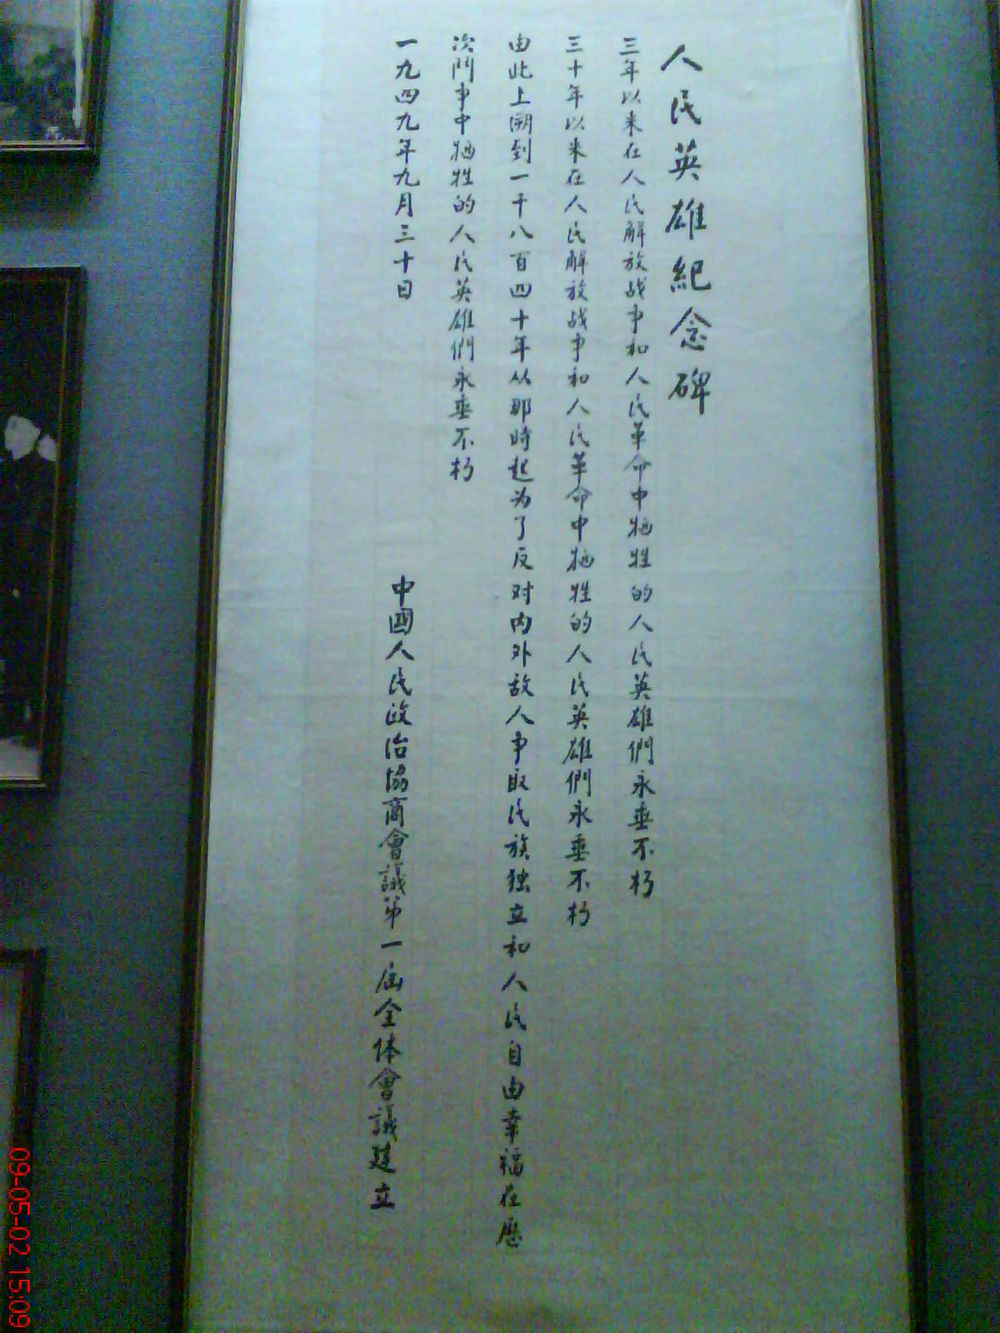 人民英雄紀念碑
三年以来在人民解放战争和人民革命中牺牲的人民英雄們永垂不朽
三十年以来在人民解放战争和人民革命中牺牲的人民英雄們永垂不朽
由此上溯到一千八百四十年从那時起为了反对内外敌人争取民族独立和人民自由幸福在歷
次鬥争中牺牲的人民英雄們永垂不朽
一九四九年九月三十日
中國人民政治協商會議第一届全体會議建立
09-05-02 15:09